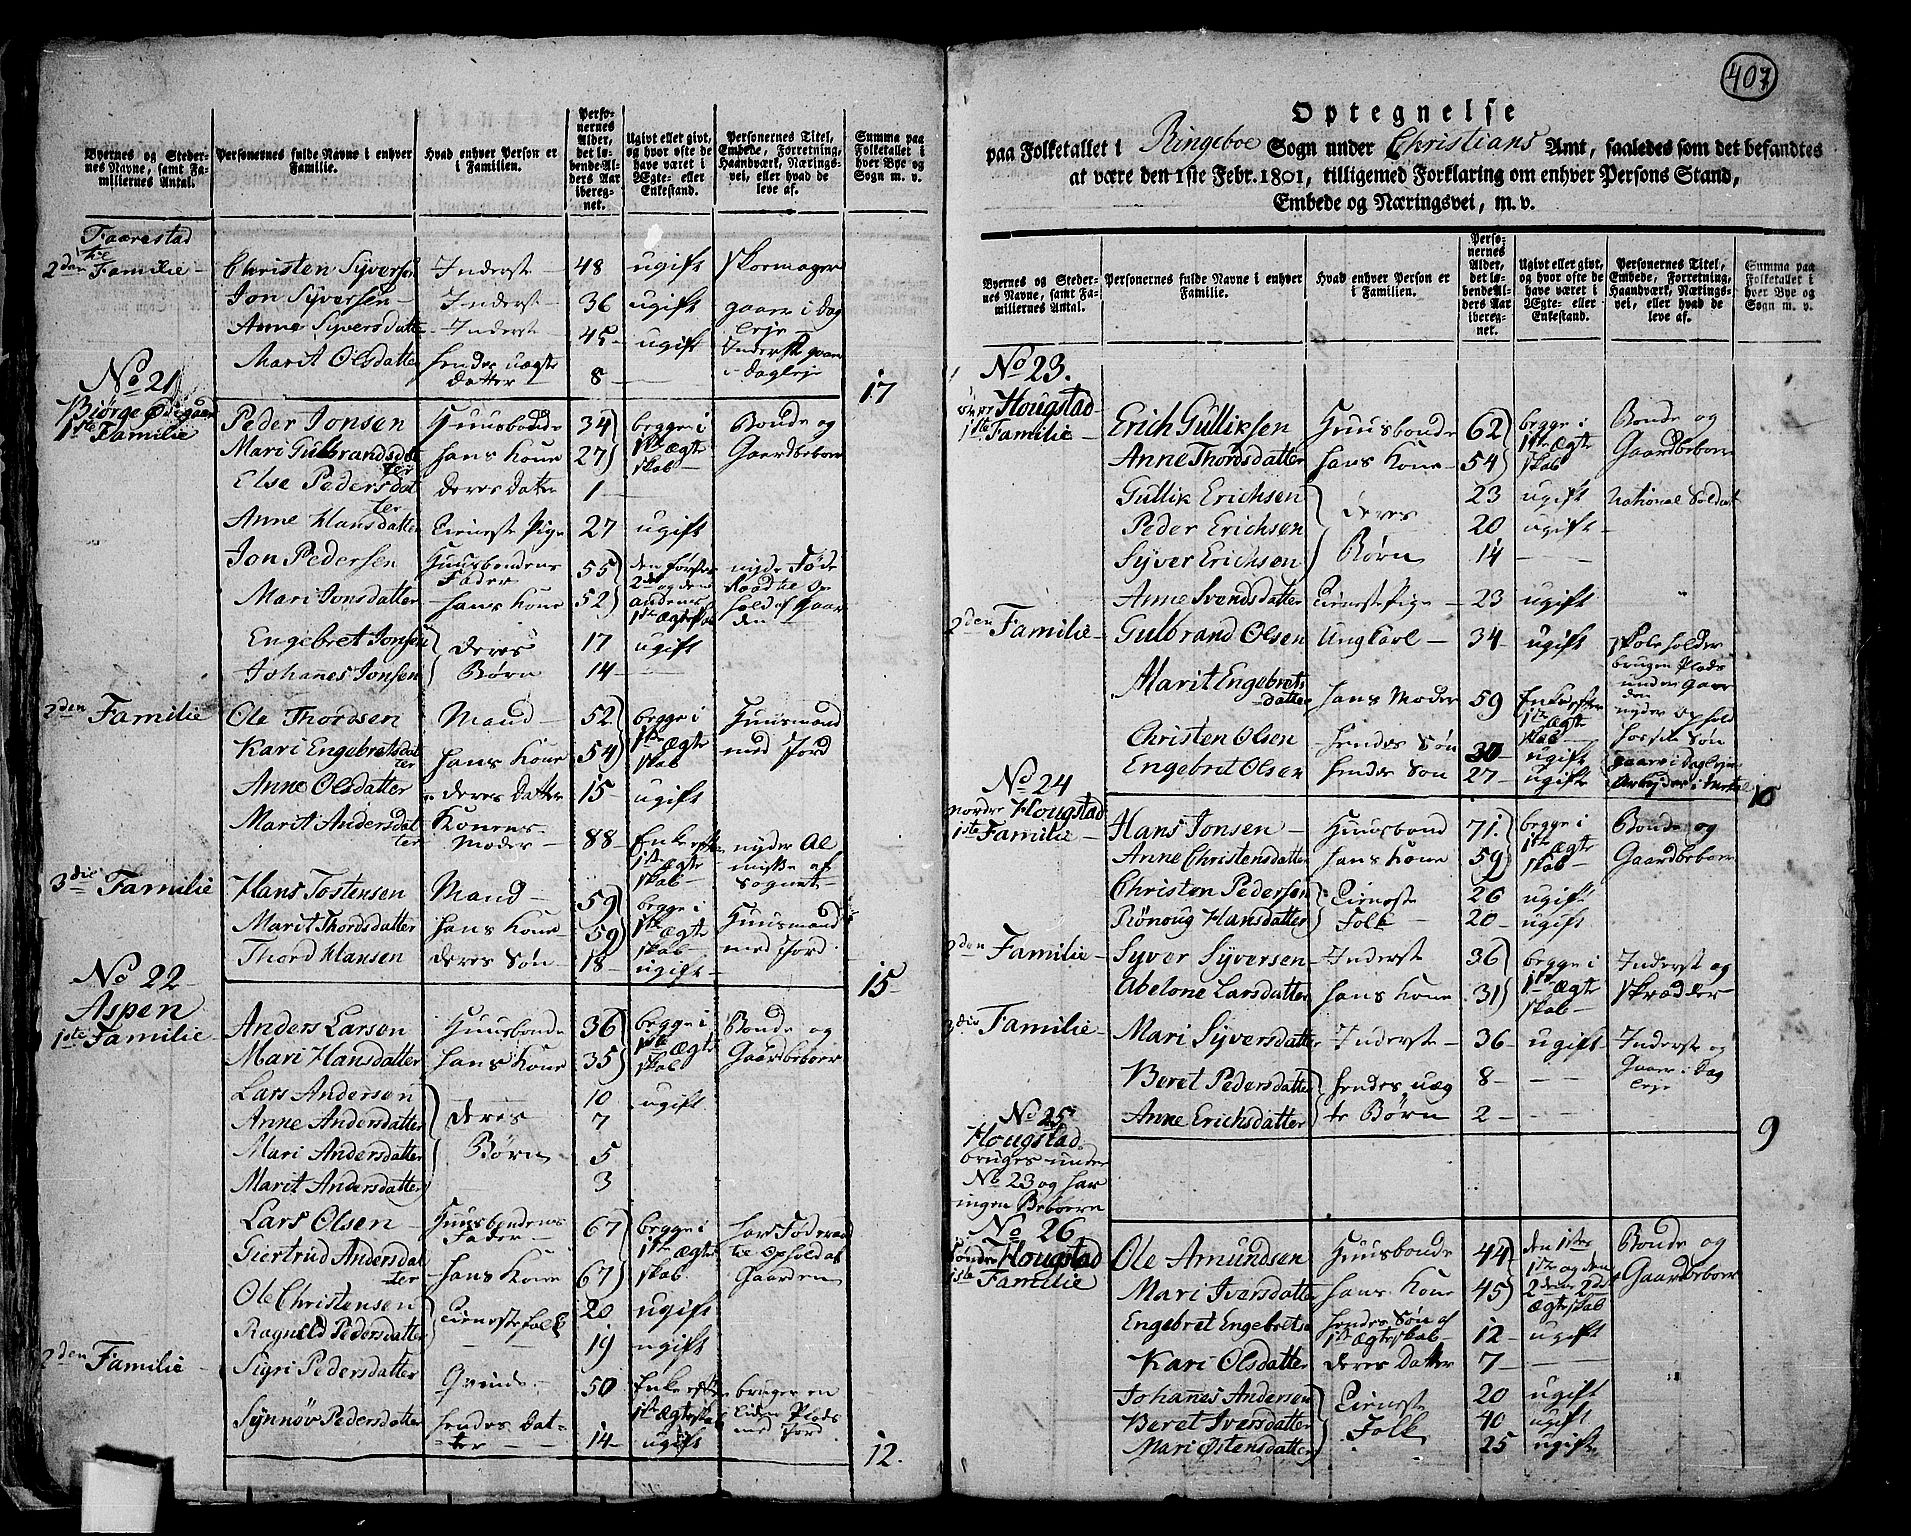 407
Byernes og Stedernes Navne, samt Familiernes Antal.
Personernes fulde Navne i enhver Familie.
Hvad enhver Person er i Familien.
Personernes Alder, det løbende Alders Aar iberegnet.
Ugivt eller givt, og hvor ofte de have været i Ægte- eller Enkestand.
Personernes Titel, Embede, Forretning, Haandværk, Næringsvei, eller hvad de leve af.
Summa paa Folketallet i hver Bye og Sogn m. v.
Faarestad
2den Familie - Christen Syversen Inderste - 48 ugift skoemager
Jon Syversen - Inderste - 36 ugift gaaer i Dag
Anne Syversdatter Inderste - 45 - ugift leje
Marit Olsdatter hendes uægte Datter - 8 - Inderste gaaer i Dagleje
17
No 21
Biørge
1ste Familie
Peder Jonsen Huusbonde 34 begge i 1ste Ægteskab Bonde og
Mari Gulbrandsdatter hans Kone 27 Gaardbeboer
Else Pedersdatter deres Datter 1 -
Anne Hansdatter Tieneste Pige 27 ugift
Jon Pedersen Huusbondens Fader 55 den første
Mari Jonsdatter hans Kone 52
Engebret Jonsen deres 17 ugift
Johanes Jonsen Børn 14 -
2den Familie Ole Thordsen Mand - 52 begge i 1ste Ægteskab Huusmand
Kari Engebretsdatter hans Kone 54 med Jord
Anne Olsdatter deres Datter 15 - ugift
Marit Andersdatter Konens Moder - 88 - Enke efter 1ste Ægteskab nyder Almisse af Sognet
3die Familie Hans Tostensen Mand - 59 begge i 1ste Ægteskab Huusmand
Marit Thordsdatter hans Kone 59 med Jord
Thord Hansen deres Søn 18 - ugift -
15 -
No 22
Aspen
1ste Familie - Anders Larsen Huusbonde 36 begge i 1ste Ægteskab Bonde og
Mari Hansdatter hans Kone 35 Gaardbeboer
Lars Andersen deres Børn 10 ugift
Anne Andersdatter 7
Mari Andersdatter 5
Marit Andersdatter 3
Lars Olsen - Huusbondens Fader - 67 begge i 1ste Ægteskab
Giertrud Andersdatter hans Kone 67 Gaarden
Ole Christensen Tienestefolk 20 ugift
Ragnild Pedersdatter 19 ugift
2den Familie - Sigri Pedersdatter Qvinde - 50 Enke efter 1ste Ægteskab bruger en liden Plads med Jord
Synnøv Pedersdatter hendes Datter - 14 - ugift
12.
Optegnelse
paa Folketallet i Ringeboe Sogn under Christians Amt, saaledes som det befandtes
at være den 1ste Febr. 1801, tilligemed Forklaring om enhver Persons Stand,
Embede og Næringsvei, m. v.
Byernes og Stedernes Navne, samt Familiernes Antal.
Personernes fulde Navne i enhver Familie.
Hvad enhver Person er i Familien.
Personernes Alder, det løbende Alders Aar iberegnet.
Ugivt eller givt, og hvor ofte de have været i Ægte- eller Enkestand.
Personernes Titel, Embede, Forretning, Haandværk, Næringsvei, eller hvad de leve af.
Summa paa Folketallet i hver Bye og Sogn m. v.
No 23.
Hougstad
1ste Familie - Erich Gulliksen Huusbonde 62 begge i 1ste Ægteskab Bonde og
Anne Thordsdatter hans Kone - 54 Gaardbeboer
Gullik Erichsen deres Børn 23 ugift National Soldat
Peder Erichsen 20 ugift -
Syver Erichsen 14 -
Anne Svendsdatter Tieneste Pige - 23 ugift
2den Familie - Gulbrand Olsen Ung Karl - 34 - ugift
Marit Engebretsdatter hans Moder 59 Enke efter 1ste Ægteskab
Christen Olsen hendes Søn 30 - ugift
Engebret Olsen hendes Søn 27 - ugift
10
No 24
nordre Hougstad
1ste Familie - Hans Jonsen - Huusbond 71. begge i 1ste Ægteskab - Bonde og
Anne Christensdatter hans Kone 59 Gaardbeboer
Christen Pedersen Tieneste Folk - 26 ugift
Rønoug Hansdatter 20 - ugift
2den Familie - Syver Syversen Inderste 36 begge i 1ste Ægteskab - Inderst og
Abelone Larsdatter hans Kone 31 skrædder -
3die Familie - Mari Syversdatter Inderste - 36 - ugift - Inderste og
Beret Pedersdatter hendes uægte Børn 8 - Gaaer i Dagleje
Anne Erichsdatter 2 -
9
No 25
Hougstad
bruges under
No 23 og har
ingen Beboere
No 26
Søndre Hougstad
1ste Familie Ole Amundsen Huusbonde 44 den 1stes 1ste og den 2dens 2det Ægteskab Bonde og
Mari Iversdatter hans Kone 45 Gaardbeboer
Engebret Engebretsen hendes Søn af 1ste Ægteskab - 12 - ugift
Kari Olsdatter deres Datter 7 -
Johanes Andersen Tieneste Folk 20 ugift
Beret Iversdatter 40 ugift
Mari Østensdatter 25 ugift